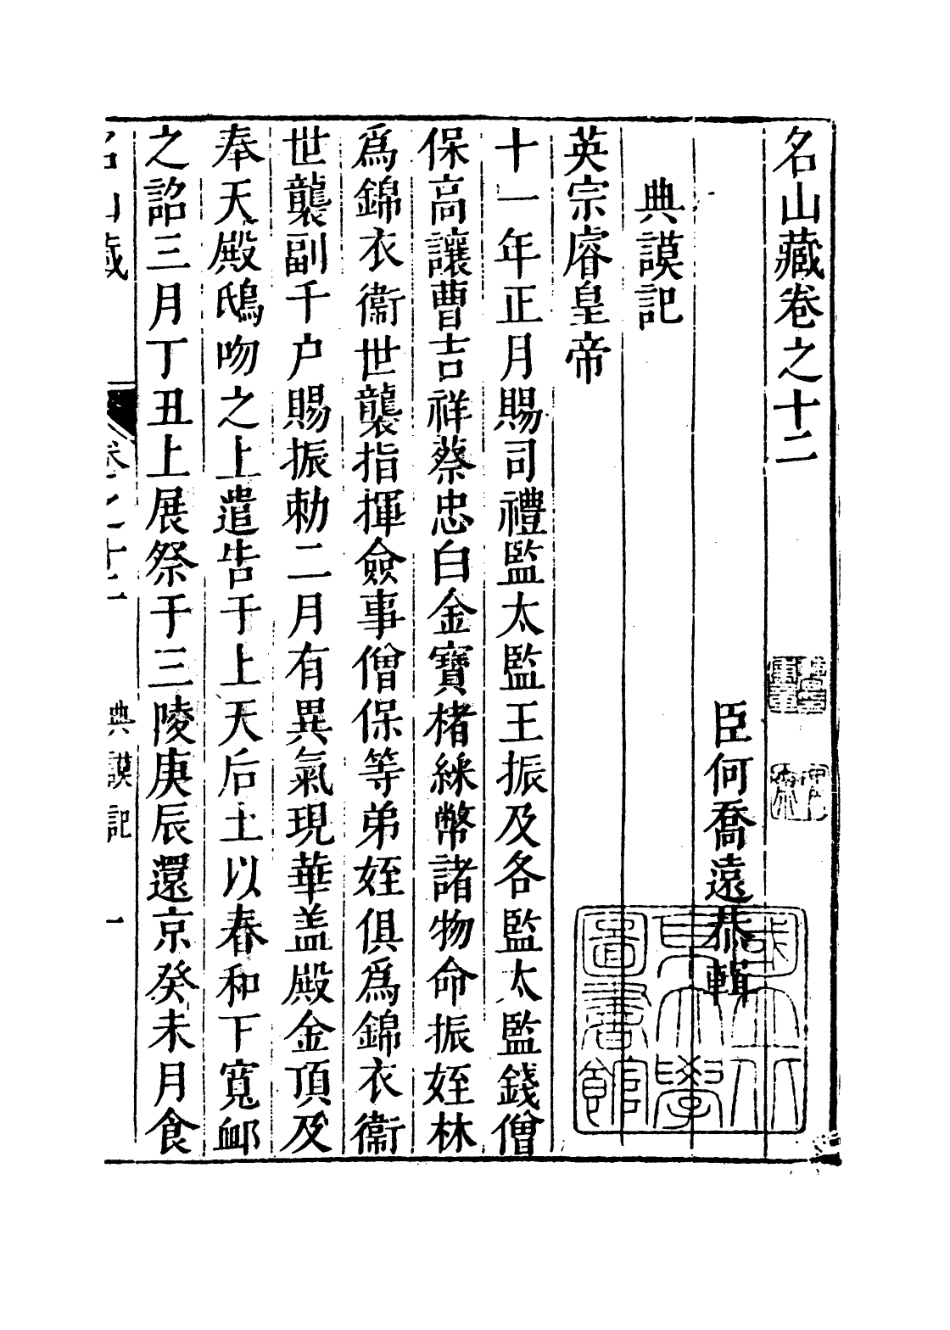 名山藏卷之十二
臣何喬遠恭輯
典謨記
英宗睿皇帝
十一年正月賜司禮監太監王振及各監太監錢僧
保高讓曹吉祥蔡忠白金寶楮綵幣諸物命振姪林
爲錦衣衞世襲指揮僉事僧保等弟姪俱爲錦衣衞
世襲副千户賜振勑二月有異氣現華盖殿金頂及
奉天殿鴟吻之上遣告于上天后土以春和下寬卹
之詔三月丁丑上展祭于三陵庚辰還京癸未月食
名山藏 卷之十二 典謨記 一
國立北
京大學
圖書館